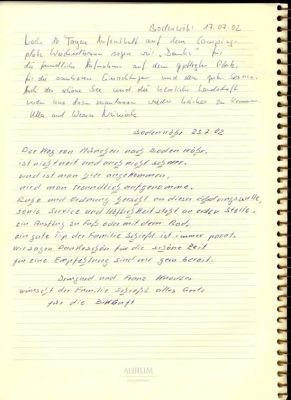 Bodenwöhr 17.07.02
Nach 10 Tagen Aufenthalt auf dem Camping-
platz Weichselbrunn sagen wir „Danke" für
die freundliche Aufnahme auf dem gepflegten Platz,
für die sauberen Einrichtungen und den guten Service.
Auch der schöne See und die herrliche Landschaft
werden uns dazu wieder hierher zu kommen
Ulla und Werner
Bodenwöhr 23.7.02
Der Weg von München nach Bodenwöhr,
ist nicht weit und auch nicht schwer.
und ist man hier angekommen,
wird man freundlich aufgenomme.
Ruhe und Ordnung herrscht an dieser Erholungsstelle,
sowie Service und Höflichkeit steht an erster Stelle.
ein Ausflug zu Fuß oder mit dem Rad,
ein gute Tip der Familie ist immer parat.
wir sagen Dankeschön für die schöne Zeit
für eine Empfehlung sind wir gern bereit.
Irmgard und Franz
wünscht der Familie alles Gute
für die Zukunft
AURUM